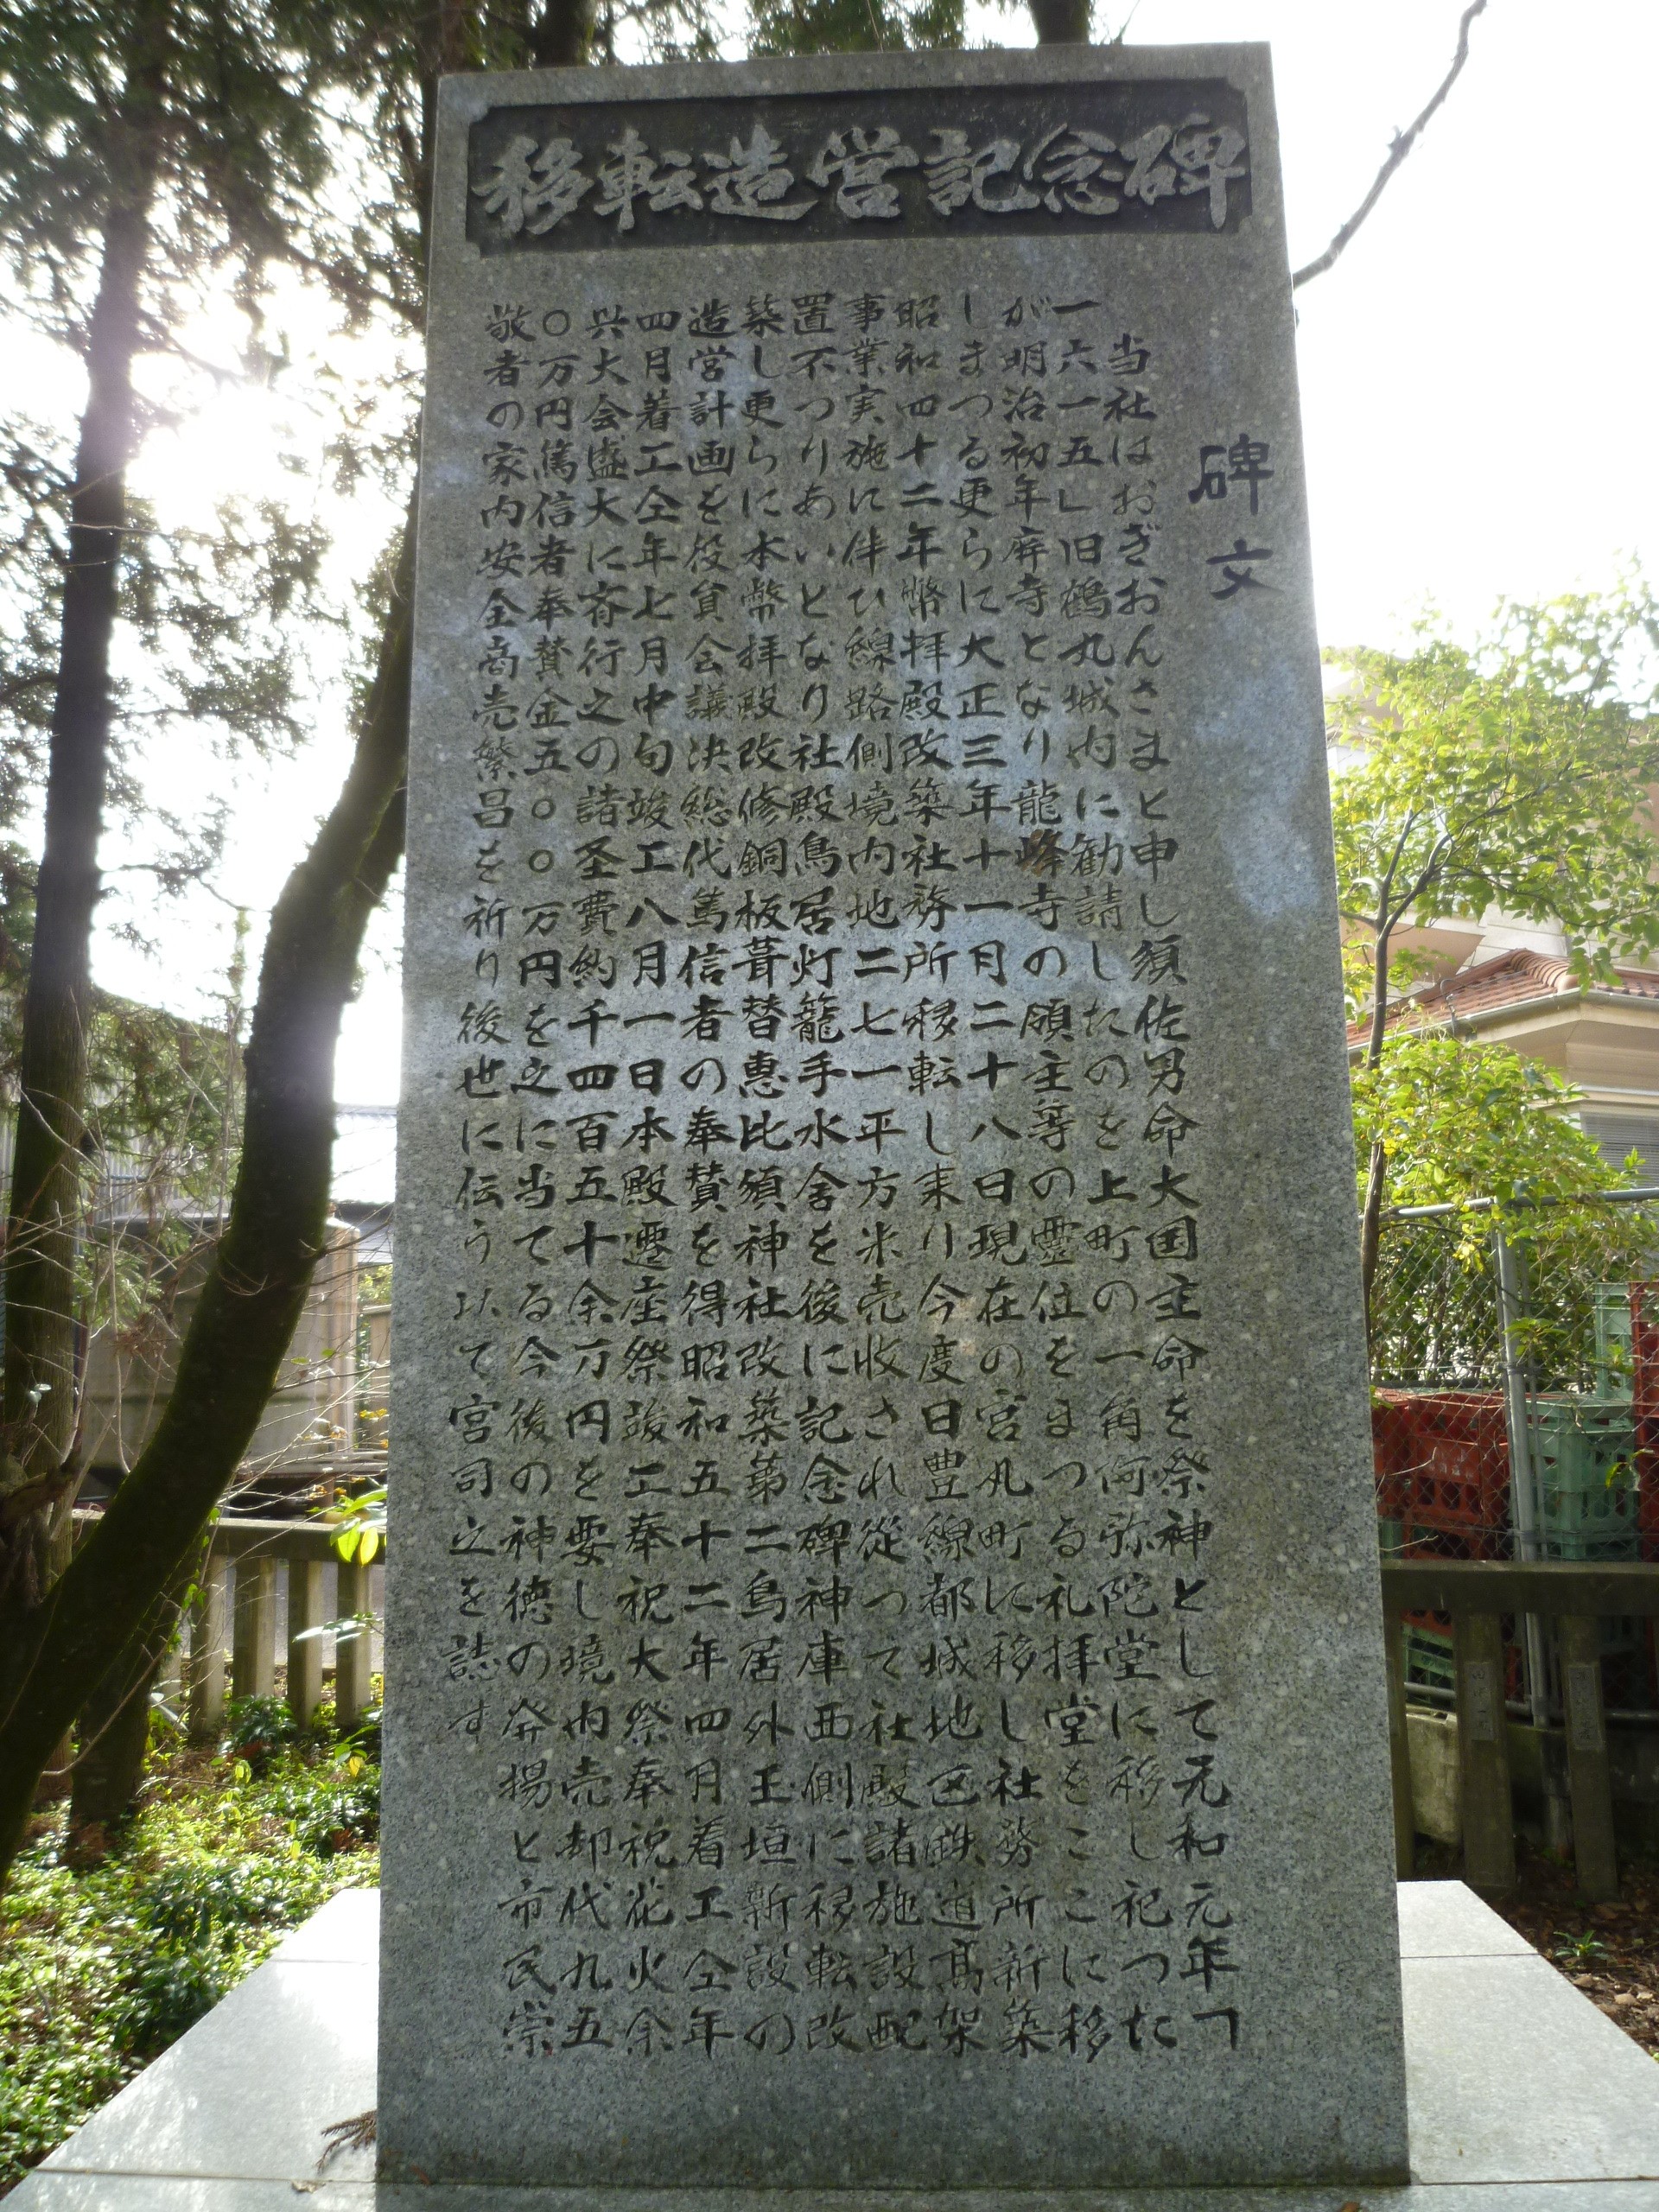 移転造営記念碑
碑文
当社はおぎおんさまと申し須佐男命大国主命を祭神として元和元年「
一六一五」旧鶴丸城内に勧請したのを上町の一角何弥陀堂に移し祀つた
が明治初年廃寺となり龍峰寺の願主等の霊位をまつる礼拝堂をここに移
しまつる更らに大正三年十一月二十八日現在の宮丸町に移し社務所新築
昭和四十二年幣拝殿改築社務所移転し来り今度日豊線都城地区鉄道高架
事業実施に伴ひ線路側境内地二七一平方米売收され從つて社殿諸施設配
置不つりあいとなり社殿鳥居灯籠手水舎を後に記念碑神庫西側に移転改
築し更らに本幣拝殿改修銅板葺替恵比須神社改築第二鳥居外玉垣新設の
造営計画を役員会議決総代篤信者の奉賛を得昭和五十二年四月着工仝年
四月着工仝年七月中旬竣工八月一日本殿遷座祭竣工奉祝大祭奉祝花火余
興大会盛大に斎行之の諸圣費約千四百五十余万円を要し境内売却代九五
〇万円篤信者奉賛金五〇〇万円を之に当てる今後の神徳の発揚と市民崇
敬者の家内安全商売繁昌を祈り後世に伝う以て宮司之を誌す